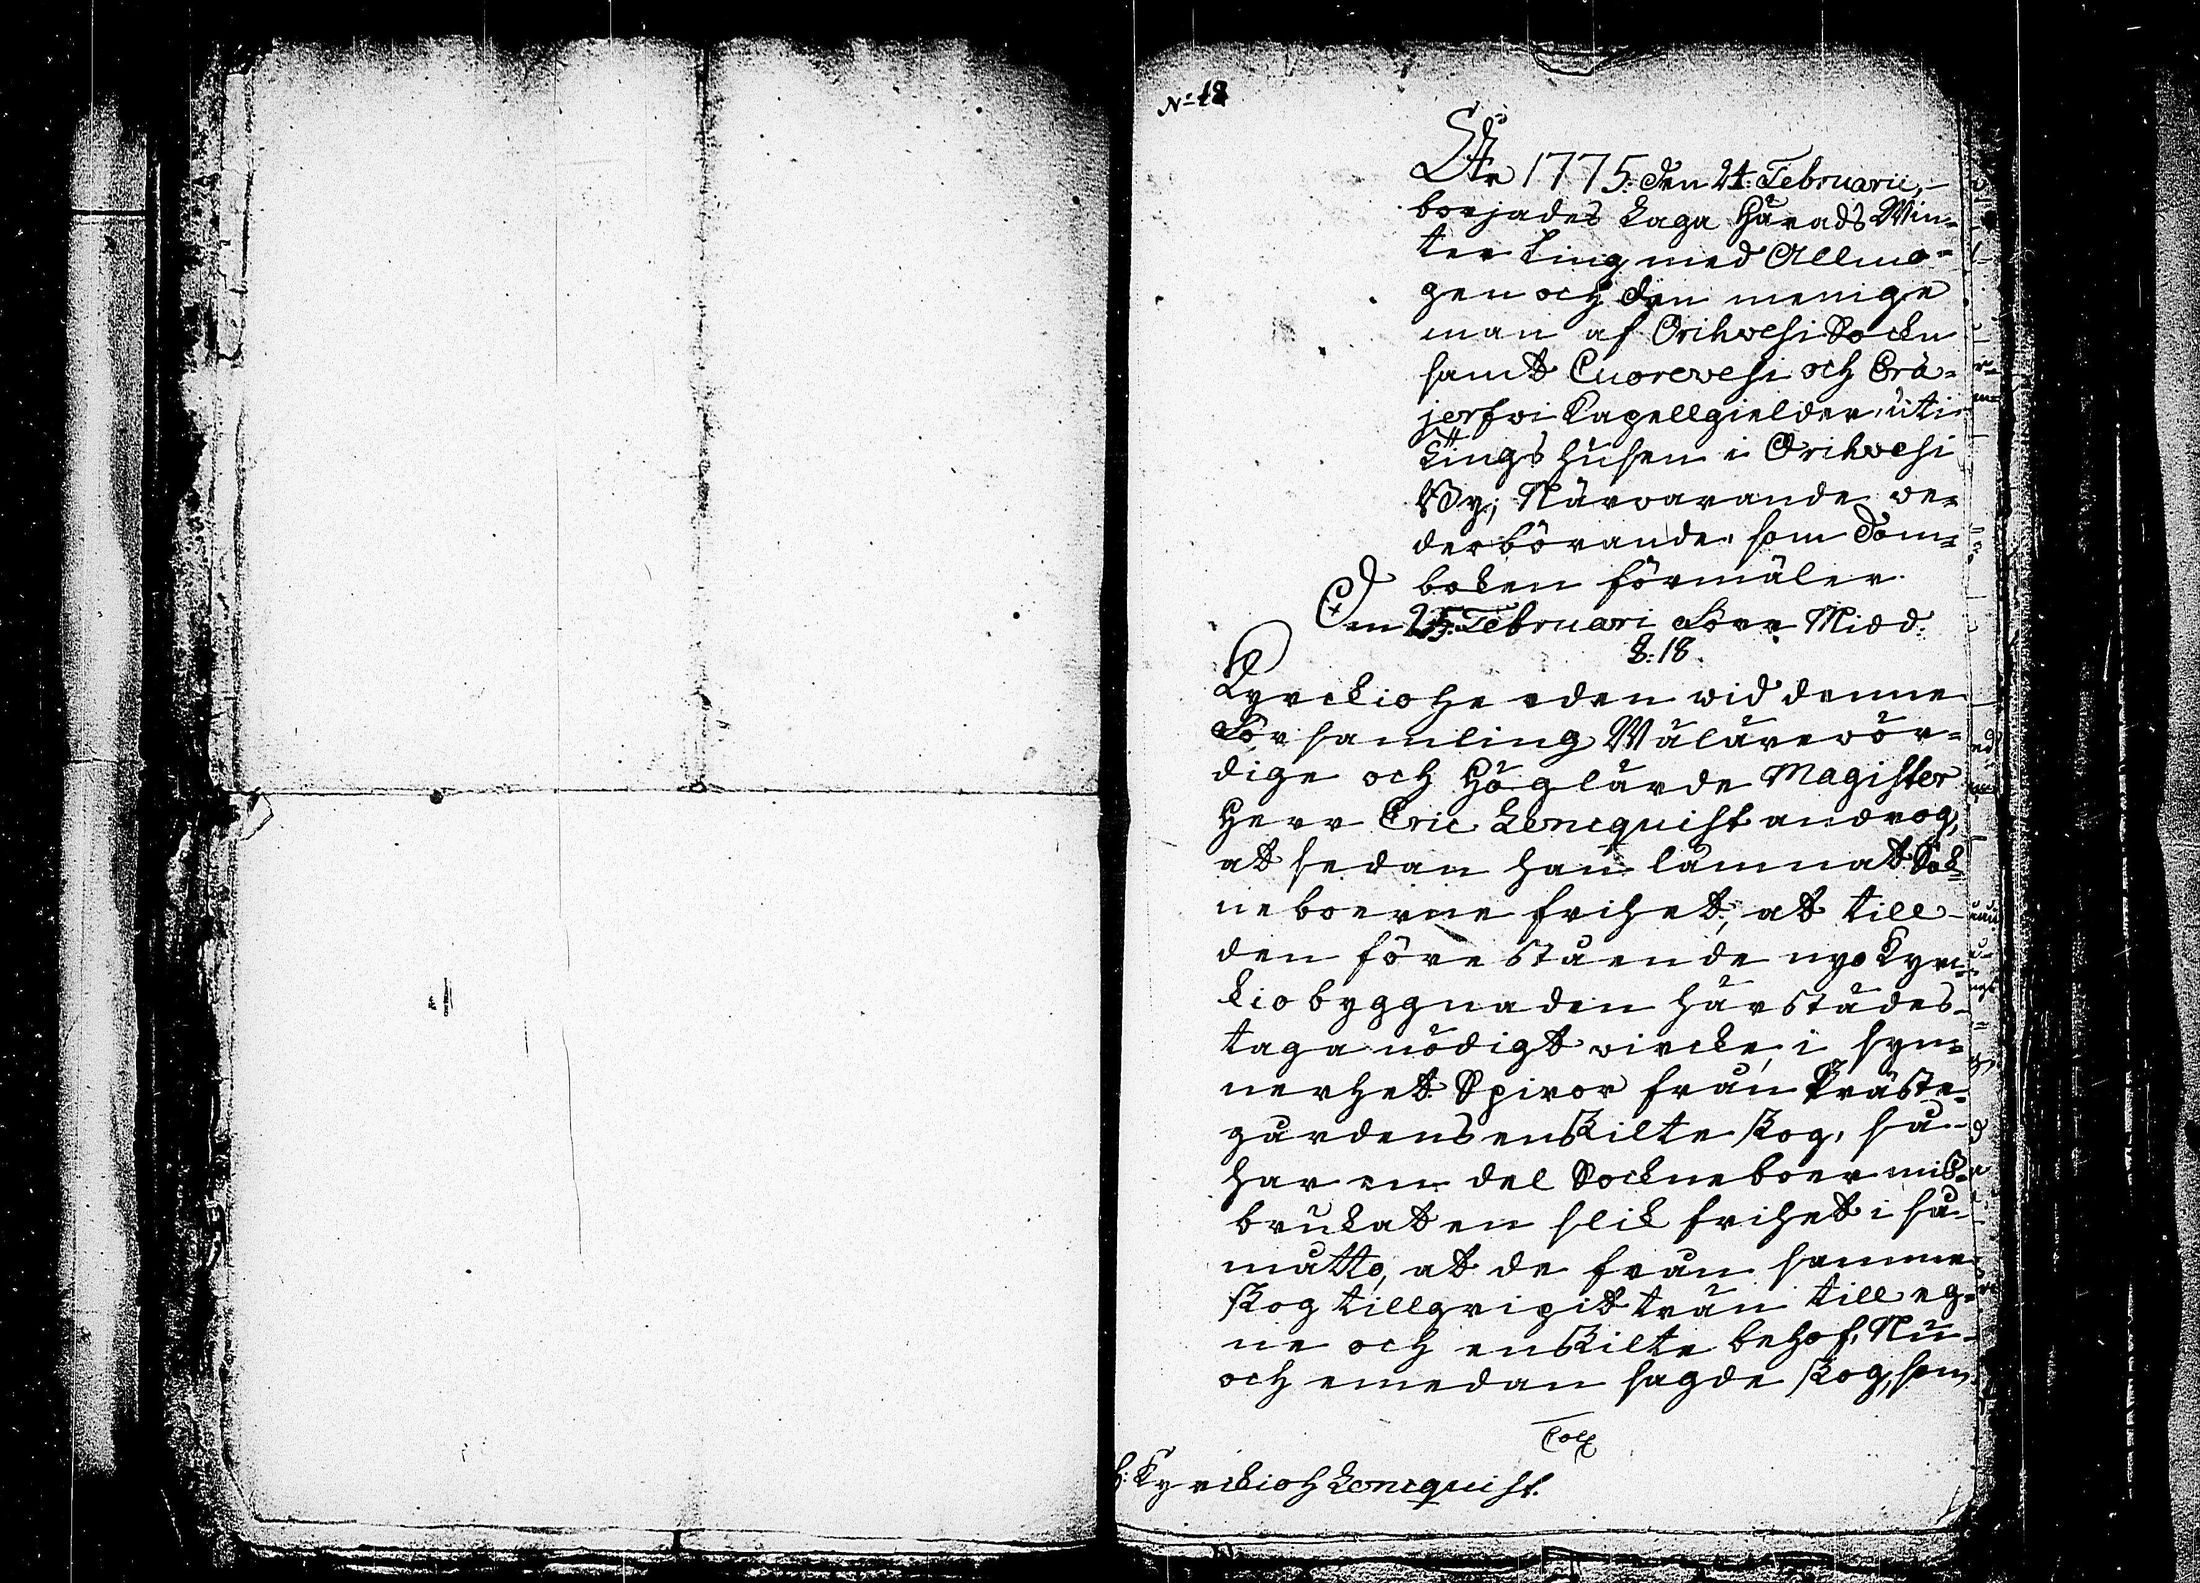 No 18
År 1775. den 24. Februarii,
borjades Laga Härads Win-
ter Ting med Allmo-
gen och den menige
man af Orihvesi Sockn
samt Cuorevesi och Erä-
jerfwi Capellgielder, uti
Tings husen i Orihvesi
By; Närwarande we-
derbörande, som Dom-
boken förmäler.
Den 25. Februari Förr Midd.
§. 18.
Kyrckioherden wid denne
Församling Wälärewör-
dige och Höglärde Magister
Herr Eric Lencquist androg,
at sedan han lämnat Sok-
neboerne frihet, at till
den förestående nya Kyrc-
kiobyggnaden härstädes
taga nödigt wircke, i syn-
nerhet Spiror från Präste-
gardens enskilte skog, så
har en del Sockneboer mis-
brukat en slik frihet i så
matto, at de från samme
skog tillgripit trän till eg-
ne och enskilte behof, Nu
och emedan sagde skog, som
h: Kyrckioh Lencquist.